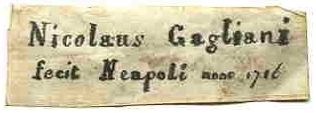 Nicolaus Gagliani
fecit Neapoli anno 1716